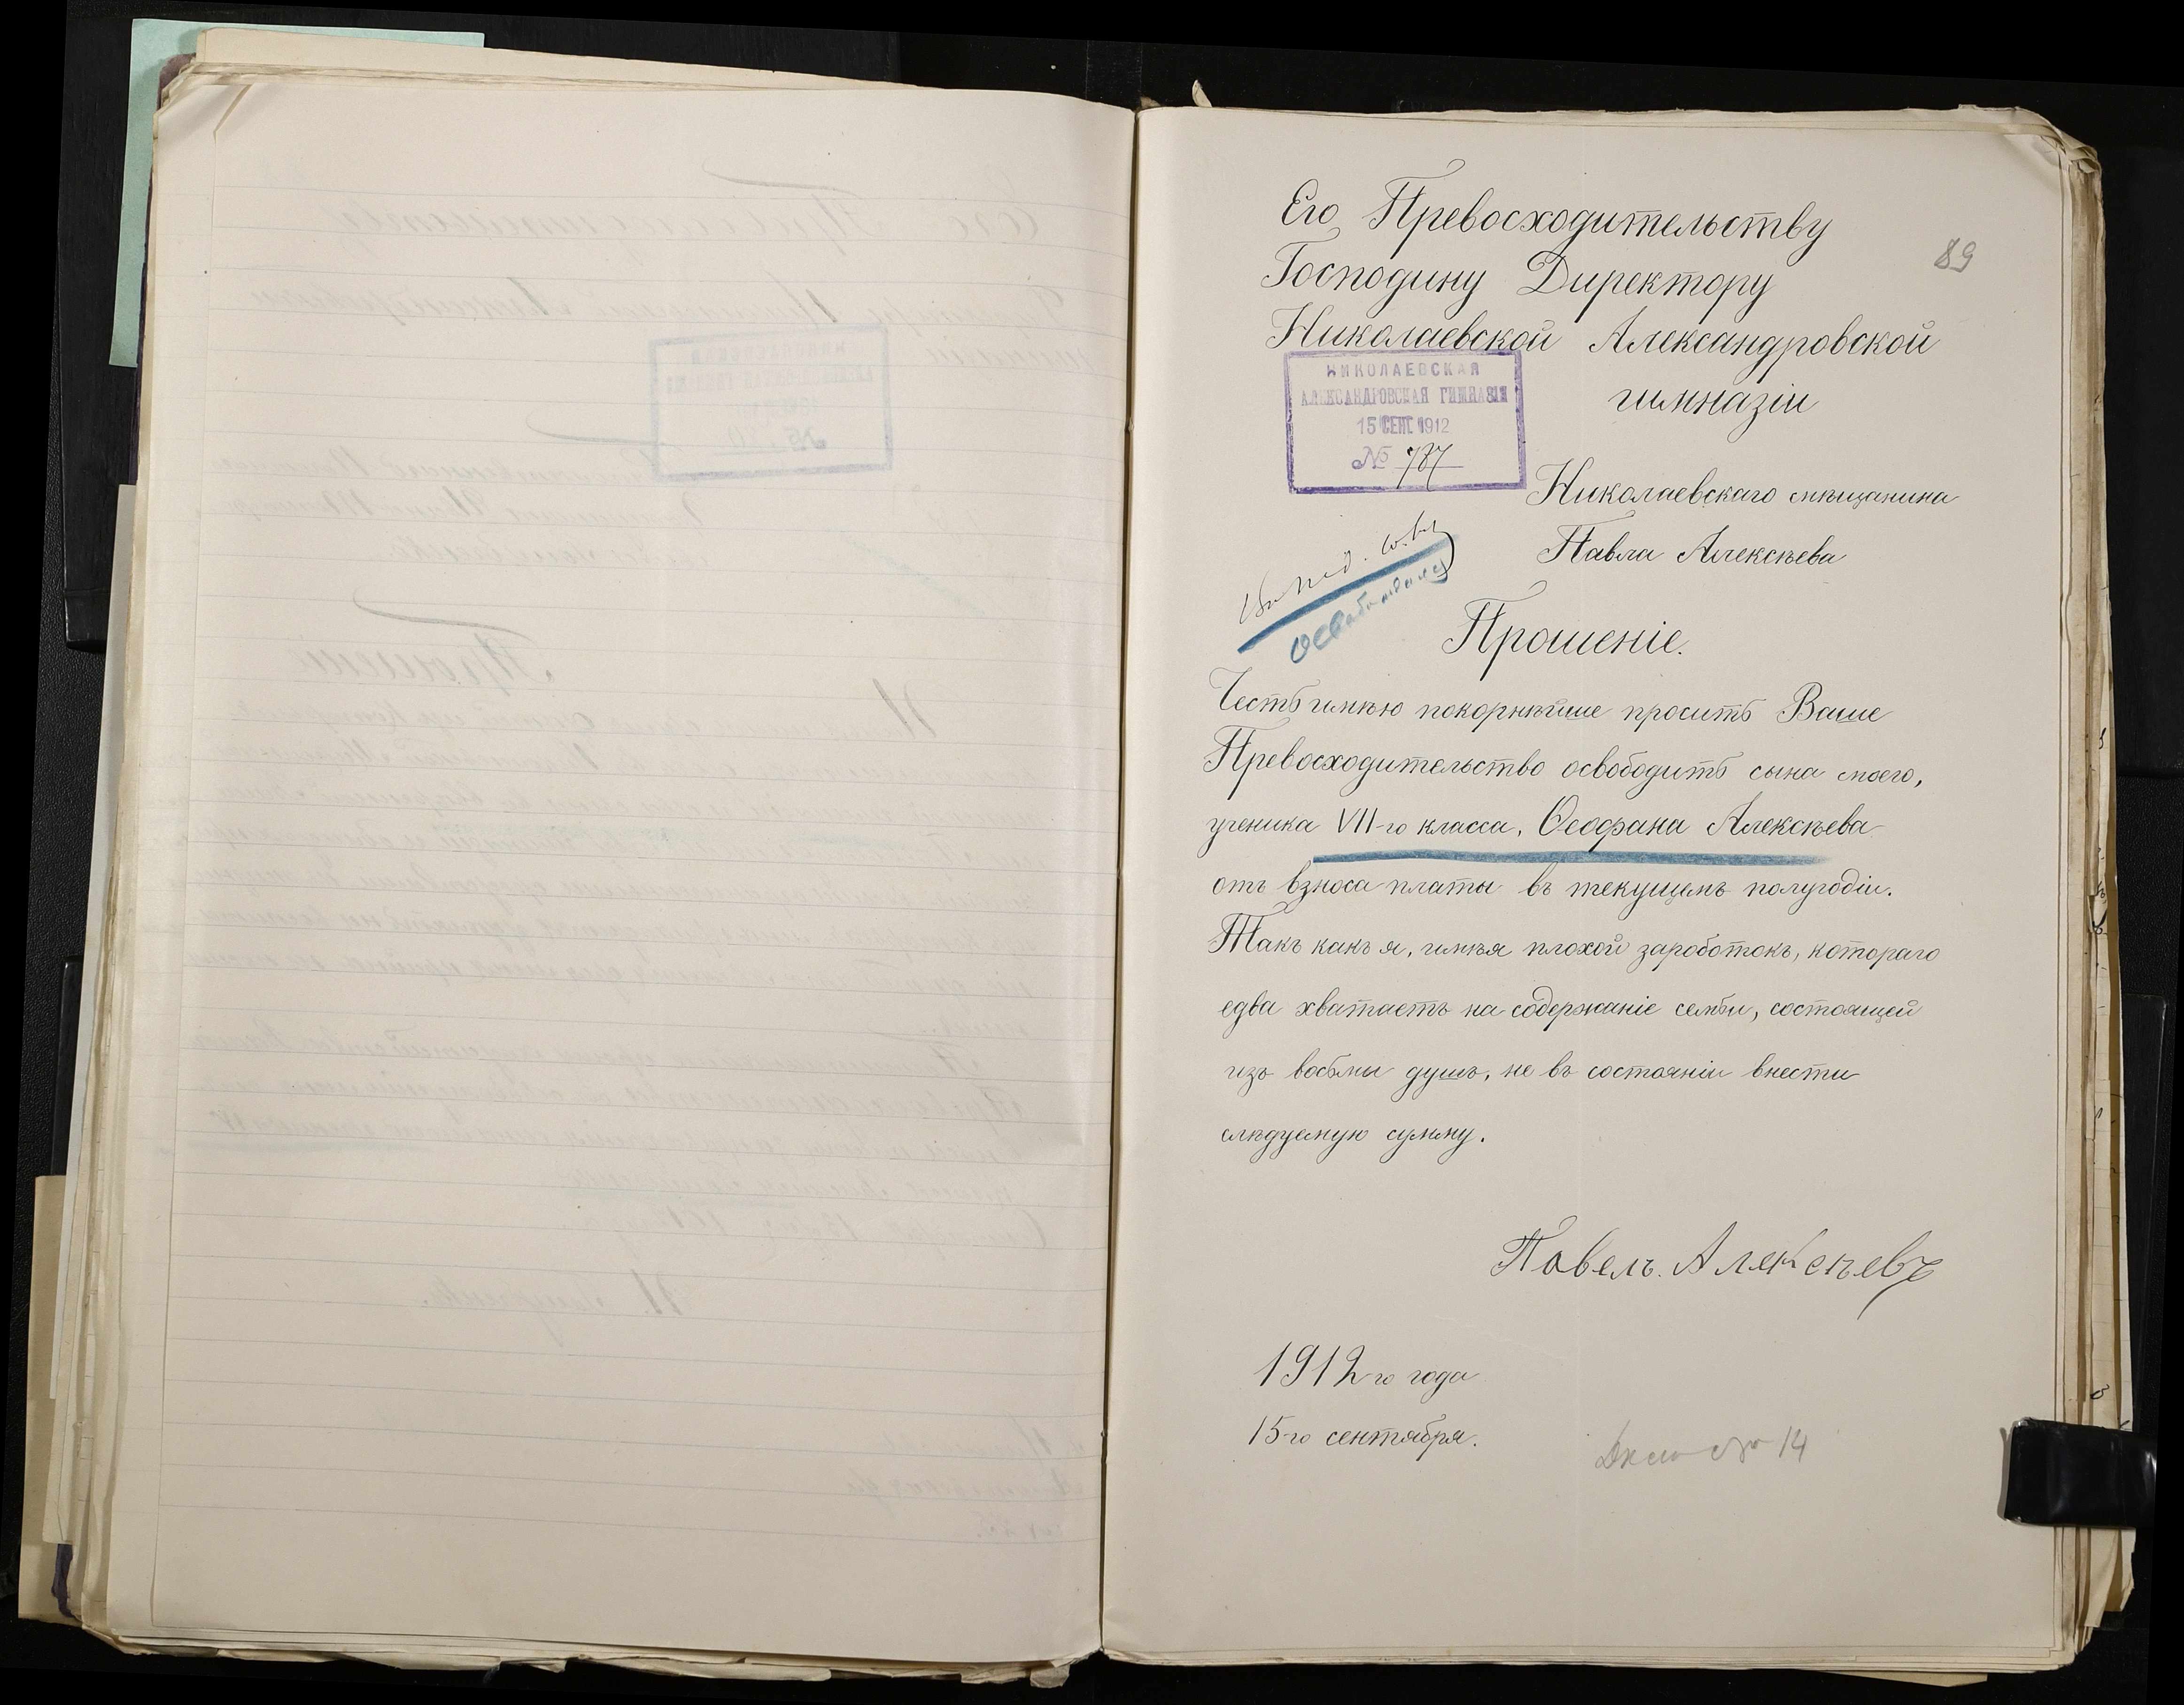 89
Его Превосходительству
Господину Директору
Николаевской Александровской
гимназіи
НИКОЛАЕВСКАЯ
АЛЕКСАНДРОВСКАЯ ГИМНАЗІЯ
15 СЕНТ 1912
№ 787
Николаевскаго мѣщанина
Павла Алексѣева
Прошеніе.
Честь имѣю покорнѣйше просить Ваше
Превосходительство освободить сына моего,
ученика VII-го класса, Ѳеофана Алексѣева
отъ взноса платы въ текущемъ полугодіи.
Такъ какъ я, имѣя плохой зароботокъ, котораго
едва хватаетъ на содержаніе семьи, состоящей
изъ восьми душъ, не въ состояніи внести
слѣдуемую сумму.
Павелъ Алексѣевъ
1912-го года
15-го сентября.
№ 14